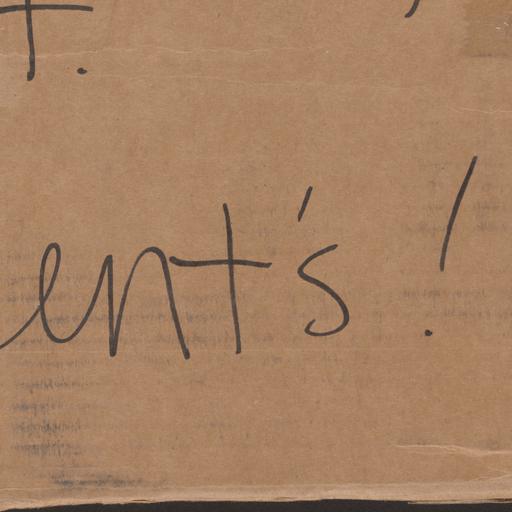 t.
ent's!